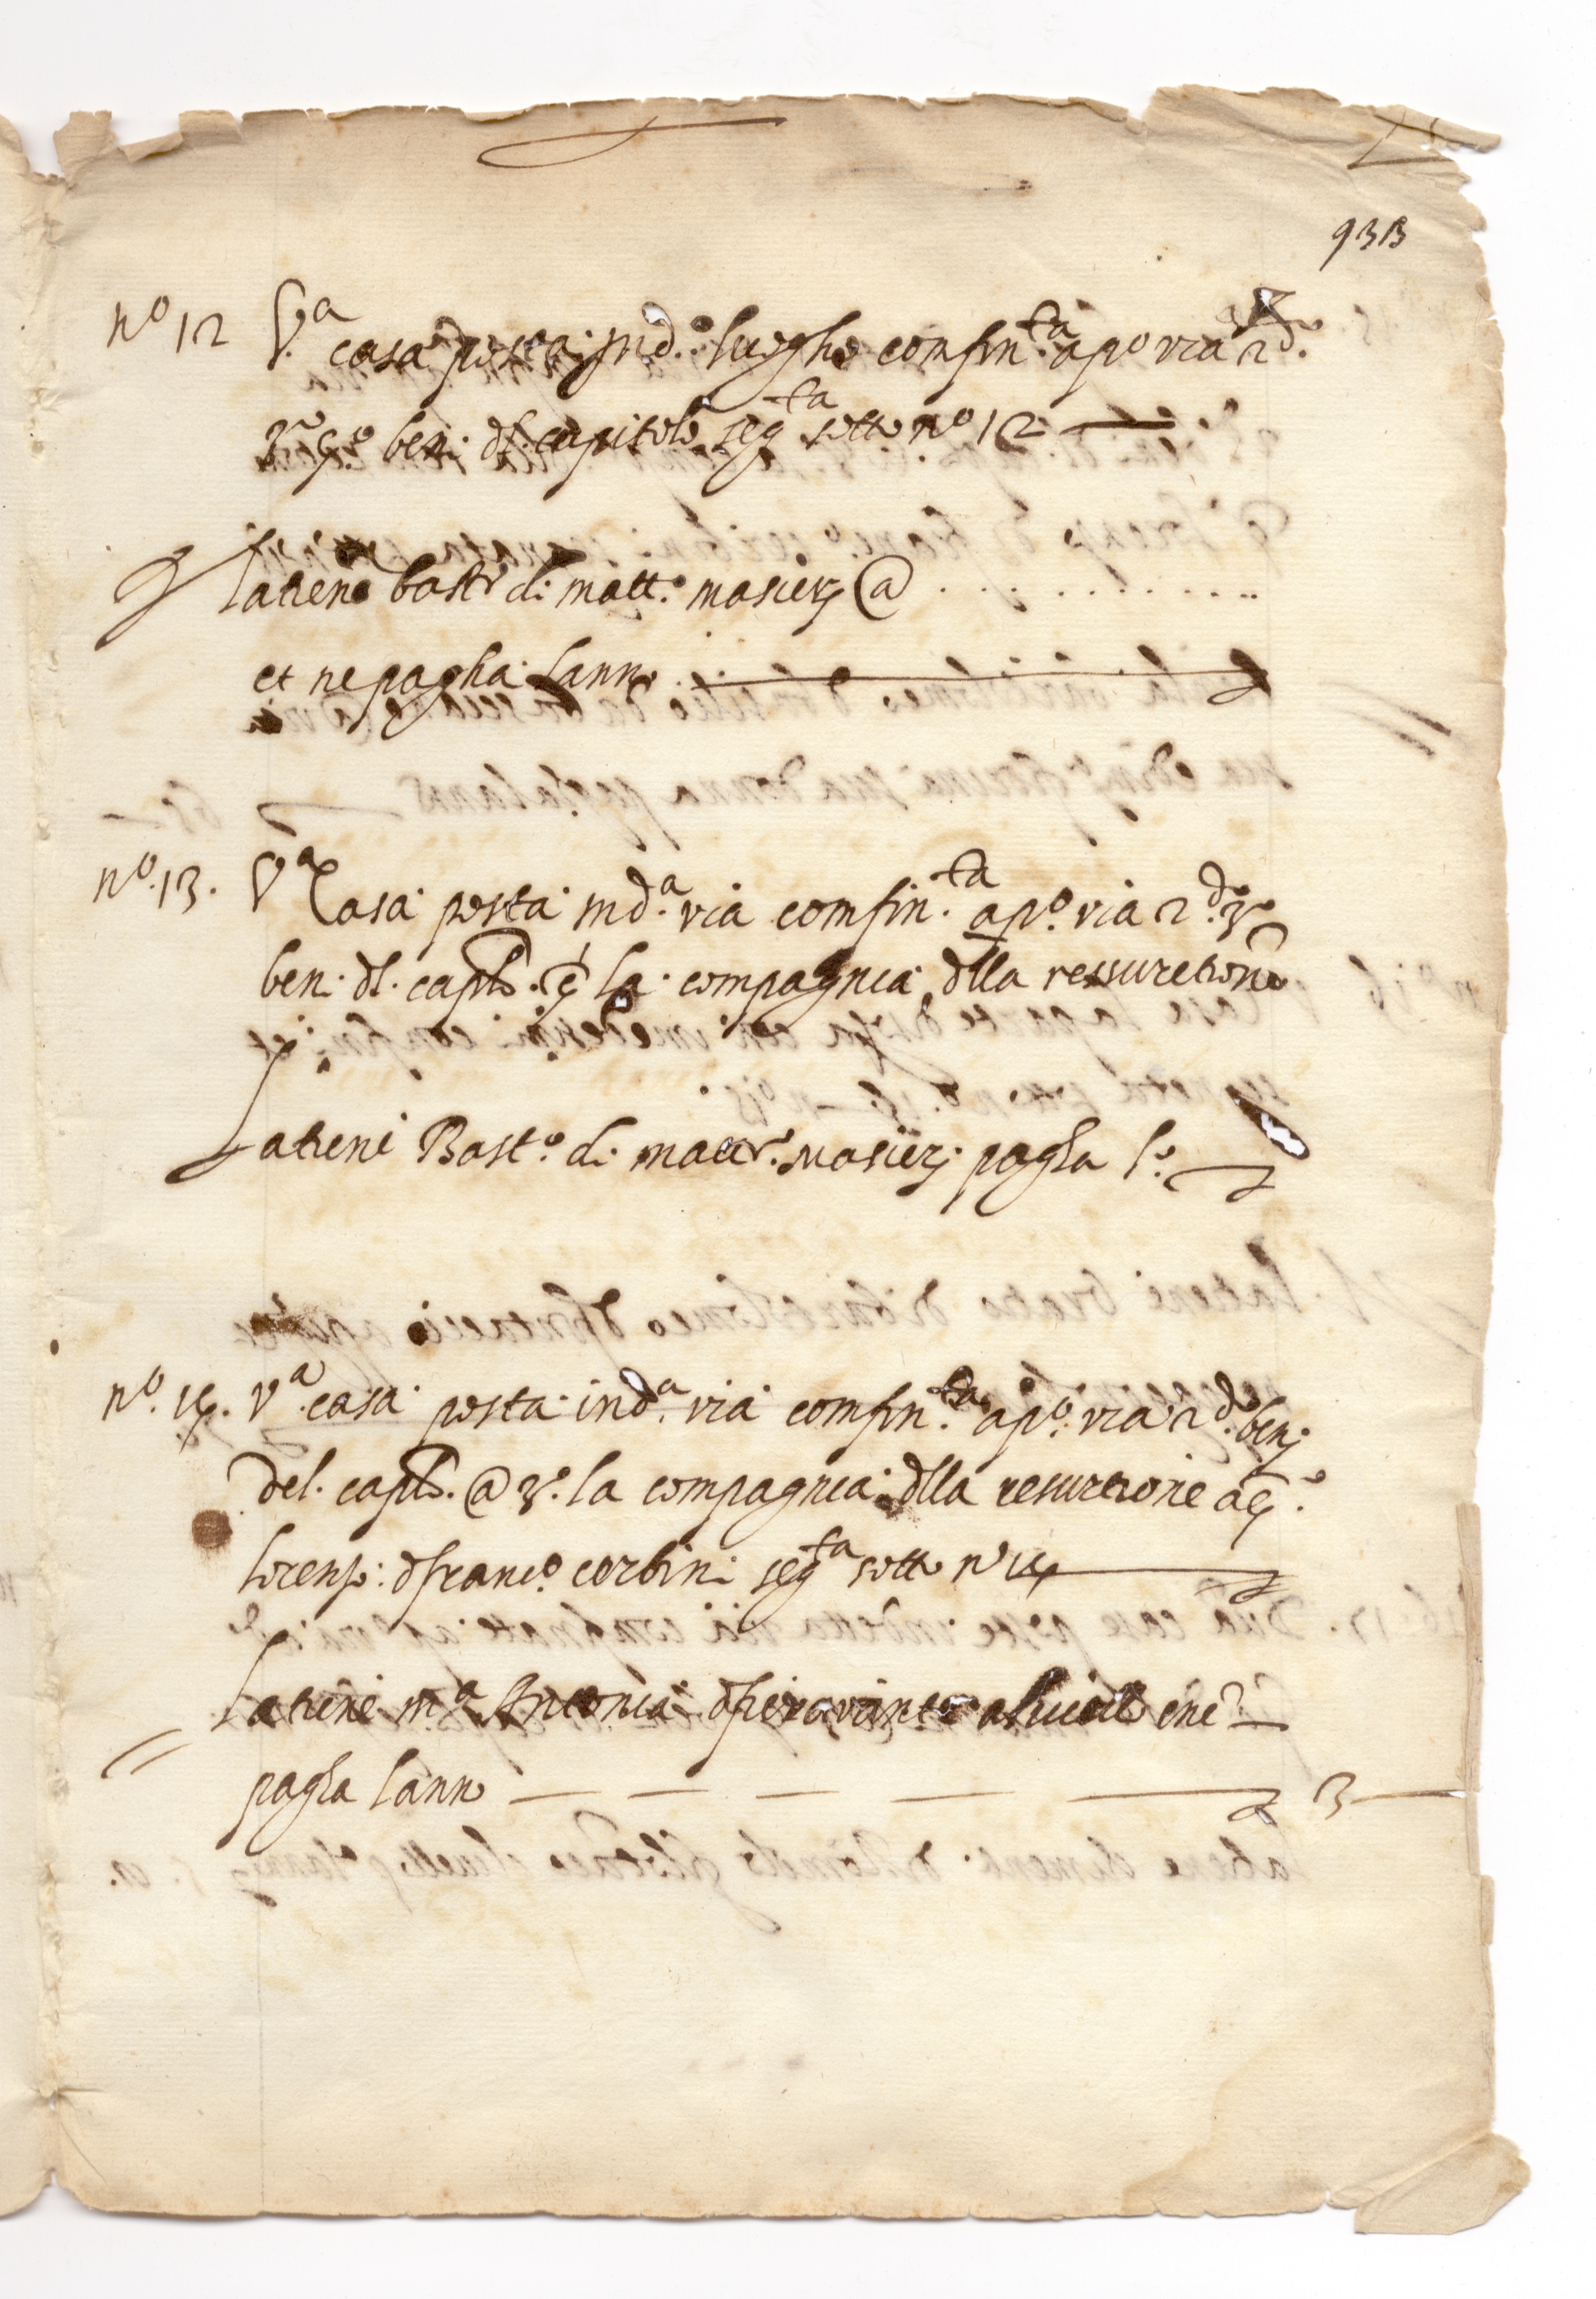 93B
nº 12 Vª casa posta in d.º luogho confin.ta a pº via 2dº.
3º 4º beni dl capitolo seg.ta sotto nº 12
la tiene bastº di matt.º masierj @
et ne pagha lanno
nº. 13. Vª Casa posta in d.ª via comfin.ta a pº. via 2dº. 3º
ben. dl. caplo. 4º la compagnia dlla ressuretione
la tiene Bast.º di matt.º masierj pagha l.º
nº. 14. Vª. casa posta in d.ª via comfin.ta a pº. via 2dº. benj
del. caplo. @ 3.º la compagnia dlla resuretione a 4.º
lorenzº: d franc.º corbini seg.ta sotto nº 14
la tiene mª Antonia d fieravante ene
pagha lanno 3